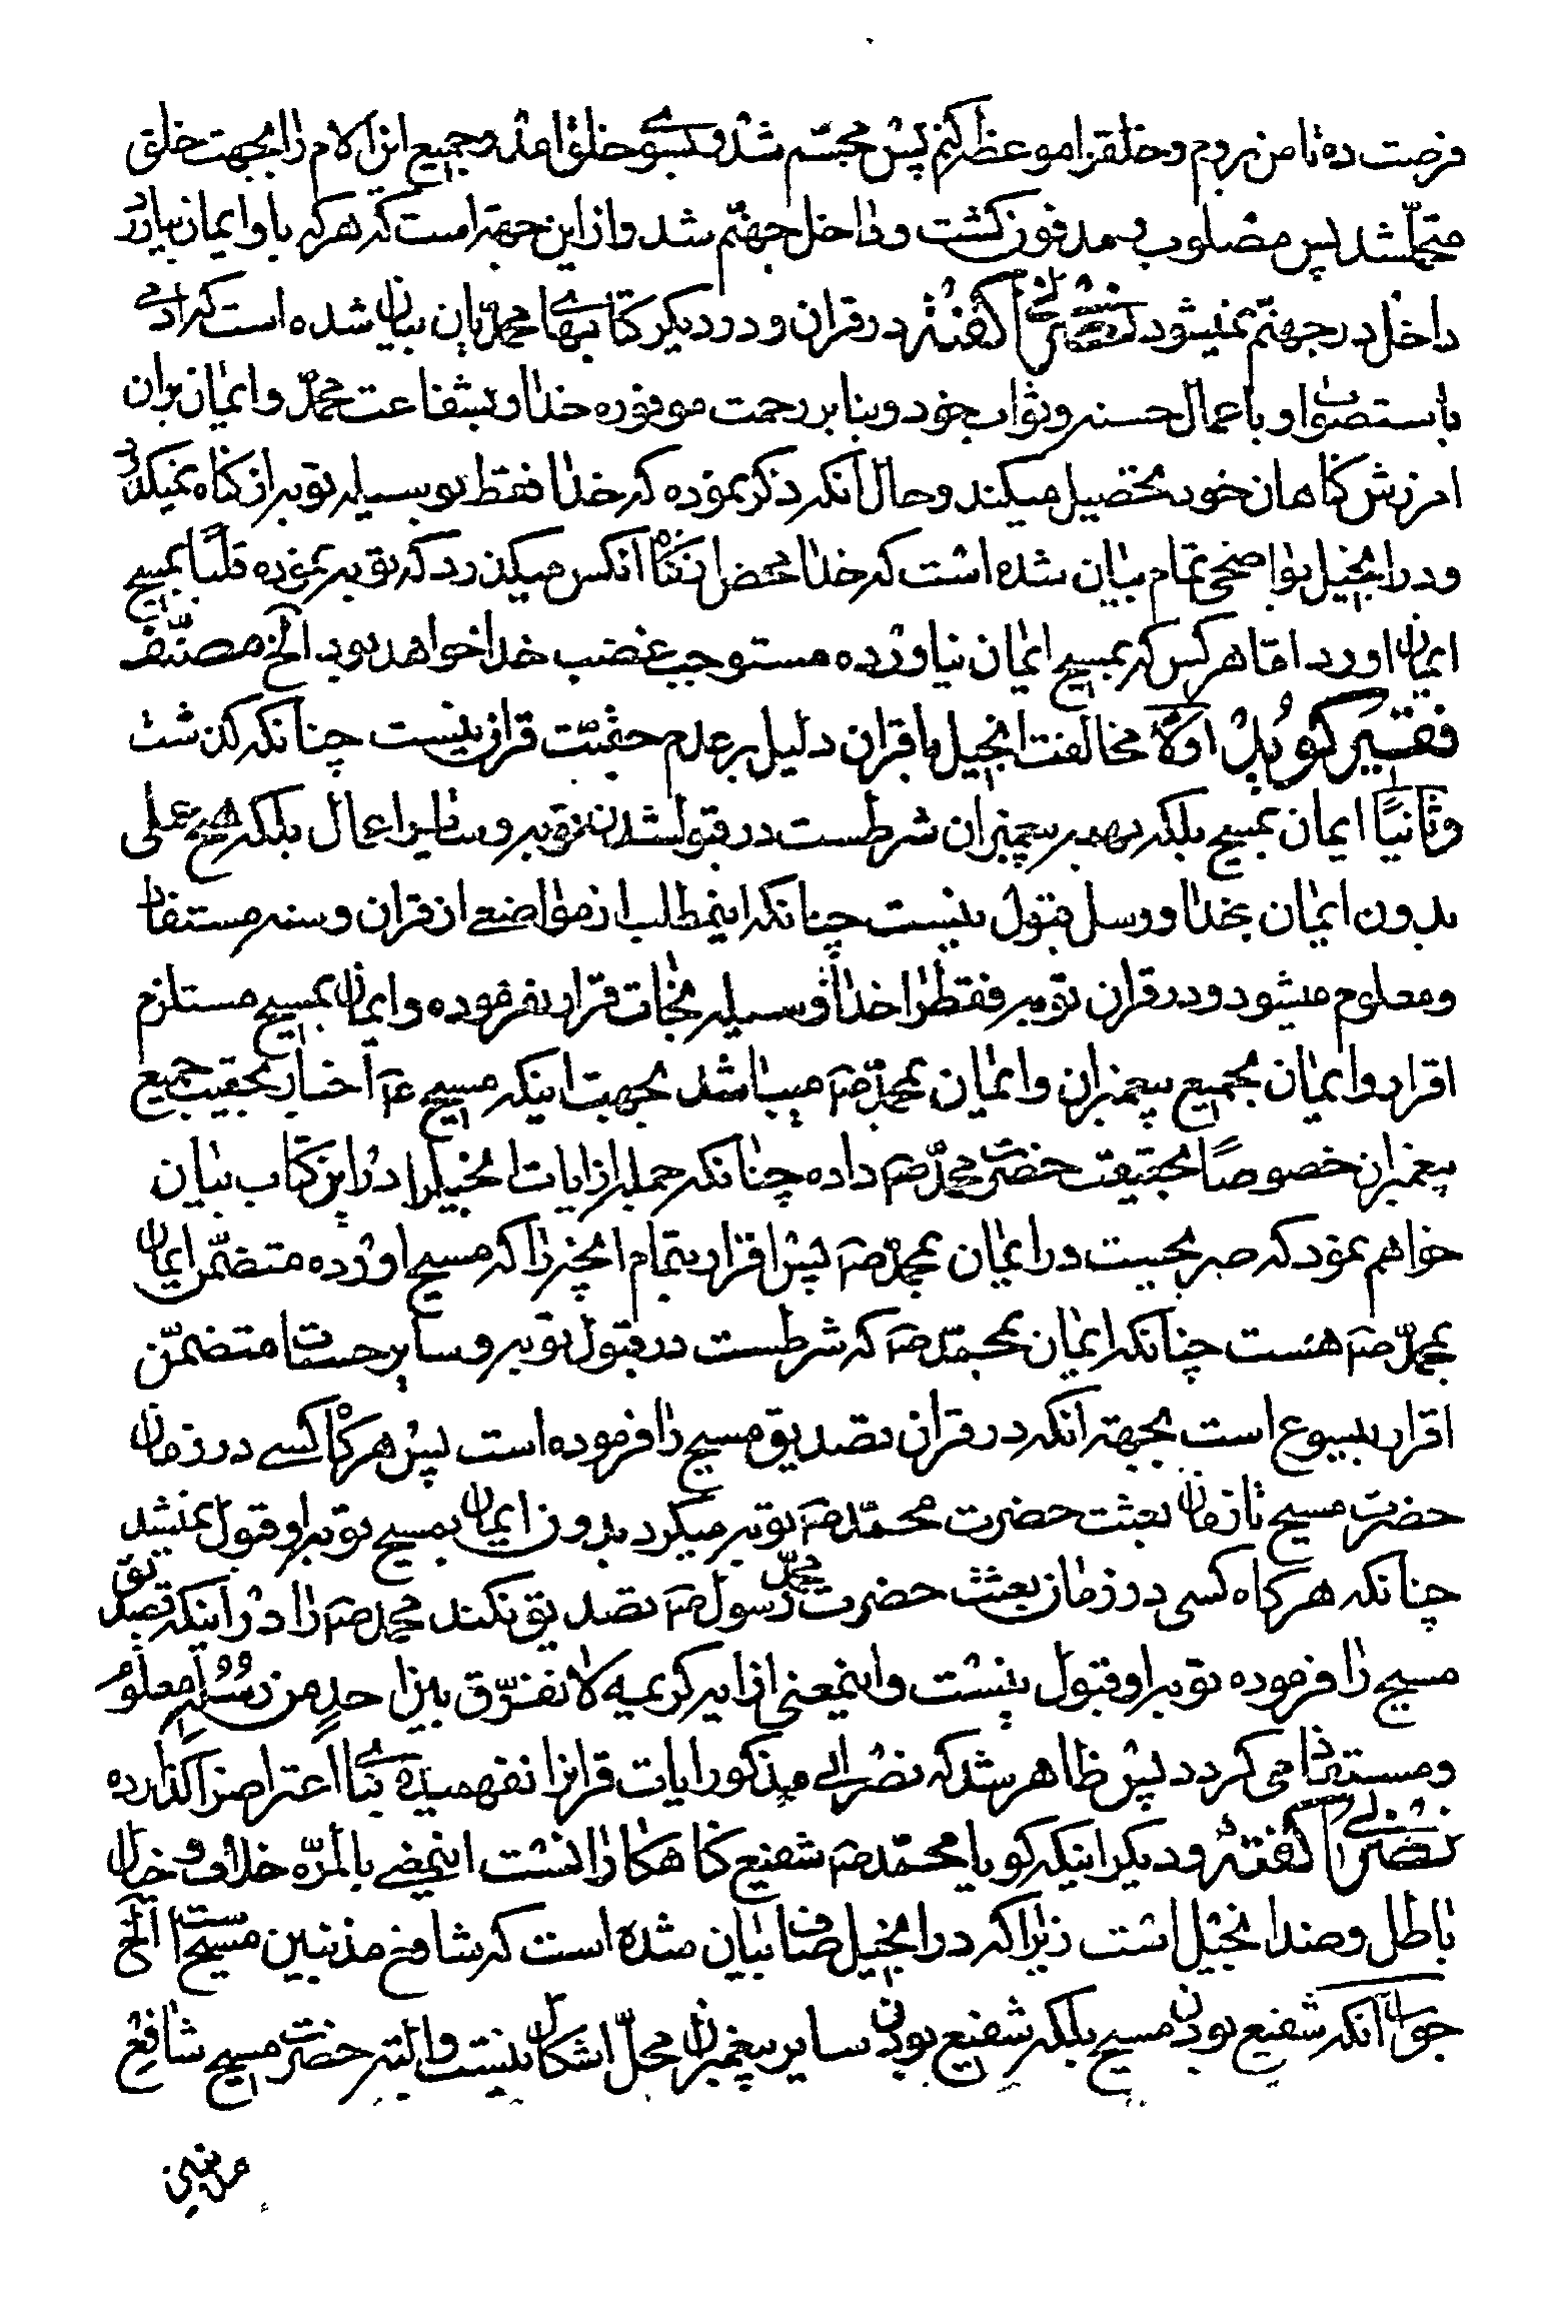 فرصت ده تا من بروم و خلقرا موعظه کنم پس مجسّم شد و بسوی خلق آمد و جمیع این آلام را بجهت خلق
متحمّل شد پس مصلوب و مدفون گشت و داخل جهنّم شد و از این جهة است که هر که باو ایمان بیاورد
داخل در جهنّم نمیشود نصرانی گفته در قران و در دیگر کتابهای محمدیان بیان شده است که آدمی
باستصواب او باعمال حسنه و ثواب خود و بنا بر رحمت موفوره خدا و بشفاعت محمّد و ایمان بران
امرزش گناهان خود تحصیل میکند و حال آنکه ذکر نموده که خدا فقط بوسیله توبه از گناه نمیگذرد
و در انجیل بواضحی تمام بیان شده است که خدا محض از گناه آنکس میگذرد که توبه نموده قلبًا بمسیح
ایمان اورد امّا هر کس که بمسیح ایمان نیاورده مستوجب غضب خدا خواهد بود الخ مصنّف
فقیر گوید اوّلا مخالفت انجیل با قران دلیل بر عدم حقیّت قران نیست چنانکه گذشت
و ثانیًا ایمان بمسیح بلکه بهمه پیغمبران شرطست در قبولشدن توبه و سایر اعمال بلکه هیچ عملی
بدون ایمان بخدا و رسل قبول نیست چنانکه اینمطلب از مواضع از قران و سنه مستفاد
و معلوم میشود و در قران توبه فقط را خدا وسیله نجات قرار نفرموده و ایمان بمسیح مستلزم
اقرار و ایمان بجمیع پیغمبران و ایمان بمحمّد ص میباشد بجهت اینکه مسیح ع اخبار بحقیت جمیع
پیغمبران خصوصًا بحقیقت حضرت محمّد ص داده چنانکه جمله از ایات انجیلرا در این کتاب بیان
خواهم نمود که صریحست در ایمان بمحمّد ص پس اقرار بتمام انچه را که مسیح اورده متضمّن ایمان
بمحمّد ص هست چنانکه ایمان بمحمّد ص که شرطست در قبول توبه و سایر حسنات متضمّن
اقرار بیسوع است بجهة آنکه در قران تصدیق مسیح را فرموده است پس هرگاه کسی در زمان
حضرت مسیح تا زمان بعثت حضرت محمّد ص توبه میکرد بدون ایمان بمسیح توبه او قبول نمیشد
چنانکه هرگاه کسی در زمان بعثت حضرت محمّد رسول ص تصدیق نکند محمد ص را در اینکه تصدیق
مسیح را فرموده توبه او قبول نیست و اینمعنی از ایه کریمه لا نفرّق بین احدٍ من رُسُلِهِ معلوم
و مستفاد می گردد پس ظاهر شد که نصرانی مذکور ایات قرانرا نفهمیده بنای اعتراض را گذارده
نصرانی گفته و دیگر اینکه گویا محمّد ص شفیع گناهکارانست اینمعنی بالمرّه خلاف و خیال
باطل و ضد انجیل است زیرا که در انجیل صاف بیان شده است که شافع مذنبین مسیح است الخ
جواب آنکه شفیع بودن مسیح بلکه شفیع بودن سایر پیغمبران محلّ اشکال نیست و البته حضرت مسیح شافع
مذنبین